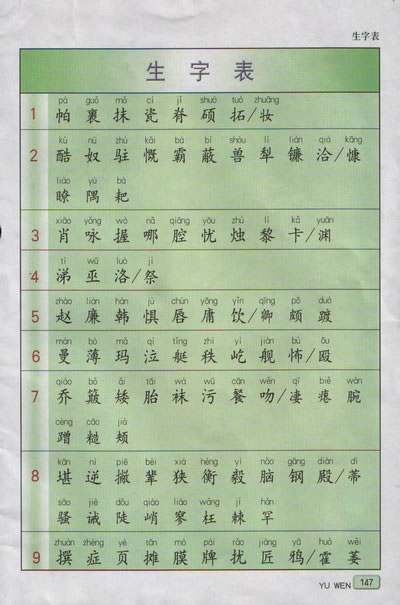 生字表
生字表
pà guǒ mò cí jǐ shuò tuò zhuāng
1 帕 裹 抹 瓷 脊 硕 拓/妆
kù nú zhù kǎi bà bì shòu lí lián qià kāng
2 酷 奴 驻 慨 霸 蔽 兽 犁 镰 洽/慷
liáo yú bà
瞭 隅 耙
xiāo yǒng wò nǎ qiāng yōu zhú lí kǎ yuān
3 肖 咏 握 哪 腔 忧 烛 黎 卡/渊
tì wū luò jì
4 涕 巫 洛/祭
zhào lián hán jù chún yōng yǐn qīng pō duó
5 赵 廉 韩 惧 唇 庸 饮/卿 颇 踱
màn bó mǎ qì tǐng zhì yì jiàn bù ōu
6 曼 薄 玛 泣 艇 秩 屹 舰 怖/殴
qiáo bǒ ǎi tāi wà wū cān wěn qī biě wàn
7 乔 簸 矮 胎 袜 污 餐 吻/凄 瘪 腕
cèng cāo jiá
蹭 糙 颊
kān nì piě bèi xiá héng yì nǎo gāng diàn dì
8 堪 逆 撇 辈 狭 衡 毅 脑 钢 殿/蒂
sāo jiè dǒu qiào liáo wǎng jí hǎn
骚 诫 陡 峭 寥 枉 棘 罕
zhuàn zhèng yè tān mó pái rǎo jiàng yā huò wěi
9 撰 症 页 摊 膜 牌 扰 匠 鸦/霍 萎
YU WEN 147